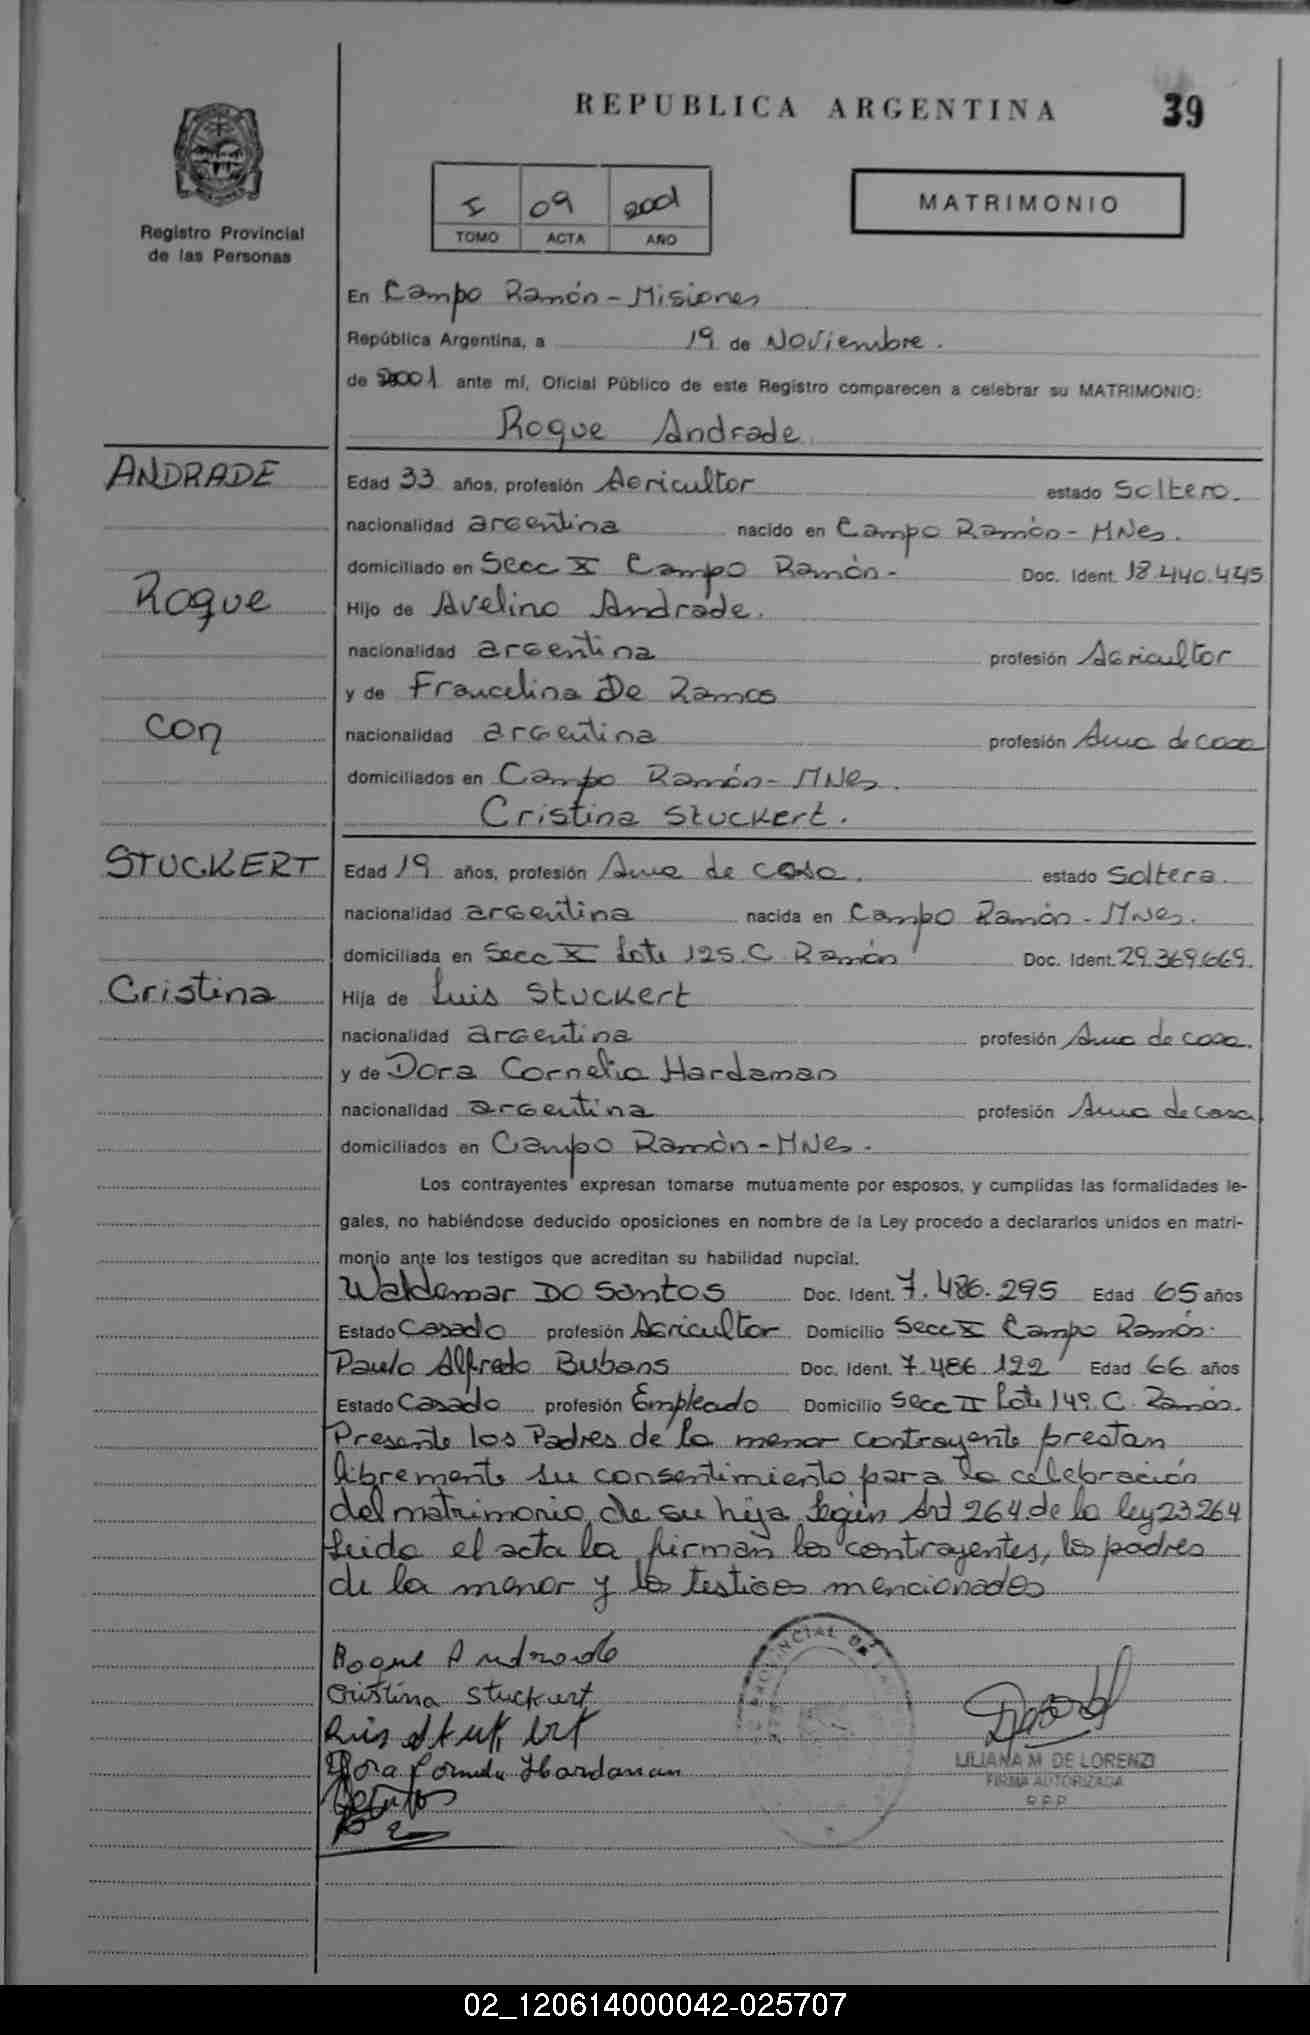 REPUBLICA ARGENTINA
39
Registro Provincial
de las Personas
I 09 2001
TOMO ACTA AÑO
MATRIMONIO
En Campo Ramón - Misiones
República Argentina, a 19 de Noviembre.
de 2001 ante mí, Oficial Público de este Registro comparecen a celebrar su MATRIMONIO:
Roque Andrade
ANDRADE
Roque
con
STUCKERT
Cristina
Edad 33 años, profesión Agricultor estado Soltero.
nacionalidad argentina nacido en Campo Ramón - MNes.
domiciliado en Secc X Campo Ramón - Doc. Ident. 18.440.445
Hijo de Avelino Andrade.
nacionalidad argentina profesión Agricultor
y de Francelina De Ramos
nacionalidad argentina profesión Ama de casa
domiciliados en Campo Ramón - MNes.
Cristina Stuckert.
Edad 19 años, profesión Ama de casa. estado Soltera.
nacionalidad argentina nacida en Campo Ramón - MNes.
domiciliada en Secc X Lote 125. C. Ramón Doc. Ident. 29.369.669.
Hija de Luis Stuckert
nacionalidad argentina profesión Ama de casa.
y de Dora Cornelia Hardaman
nacionalidad argentina profesión Ama de casa
domiciliados en Campo Ramón - MNes.
Los contrayentes expresan tomarse mutuamente por esposos, y cumplidas las formalidades le-
gales, no habiéndose deducido oposiciones en nombre de la Ley procedo a declararlos unidos en matri-
monio ante los testigos que acreditan su habilidad nupcial.
Waldemar Do Santos Doc. Ident. 7.486.295 Edad 65 años
Estado Casado profesión Agricultor Domicilio Secc X Campo Ramón.
Paulo Alfredo Bubans Doc. Ident. 7.486.122 Edad 66 años
Estado Casado profesión Empleado Domicilio Secc II Lote 149. C. Ramón.
Presente los Padres de la menor contrayente prestan
libremente su consentimiento para la celebración
del matrimonio de su hija según Art 264 de la ley 23264
Leida el acta la firman los contrayentes, los padres
de la menor y los testigos mencionados
Roque Andrade
Cristina Stuckert
Luis Stuckert
Dora Cornelia Hardaman
LILIANA M. DE LORENZI
FIRMA AUTORIZADA
R.P.P.
02_120614000042-025707